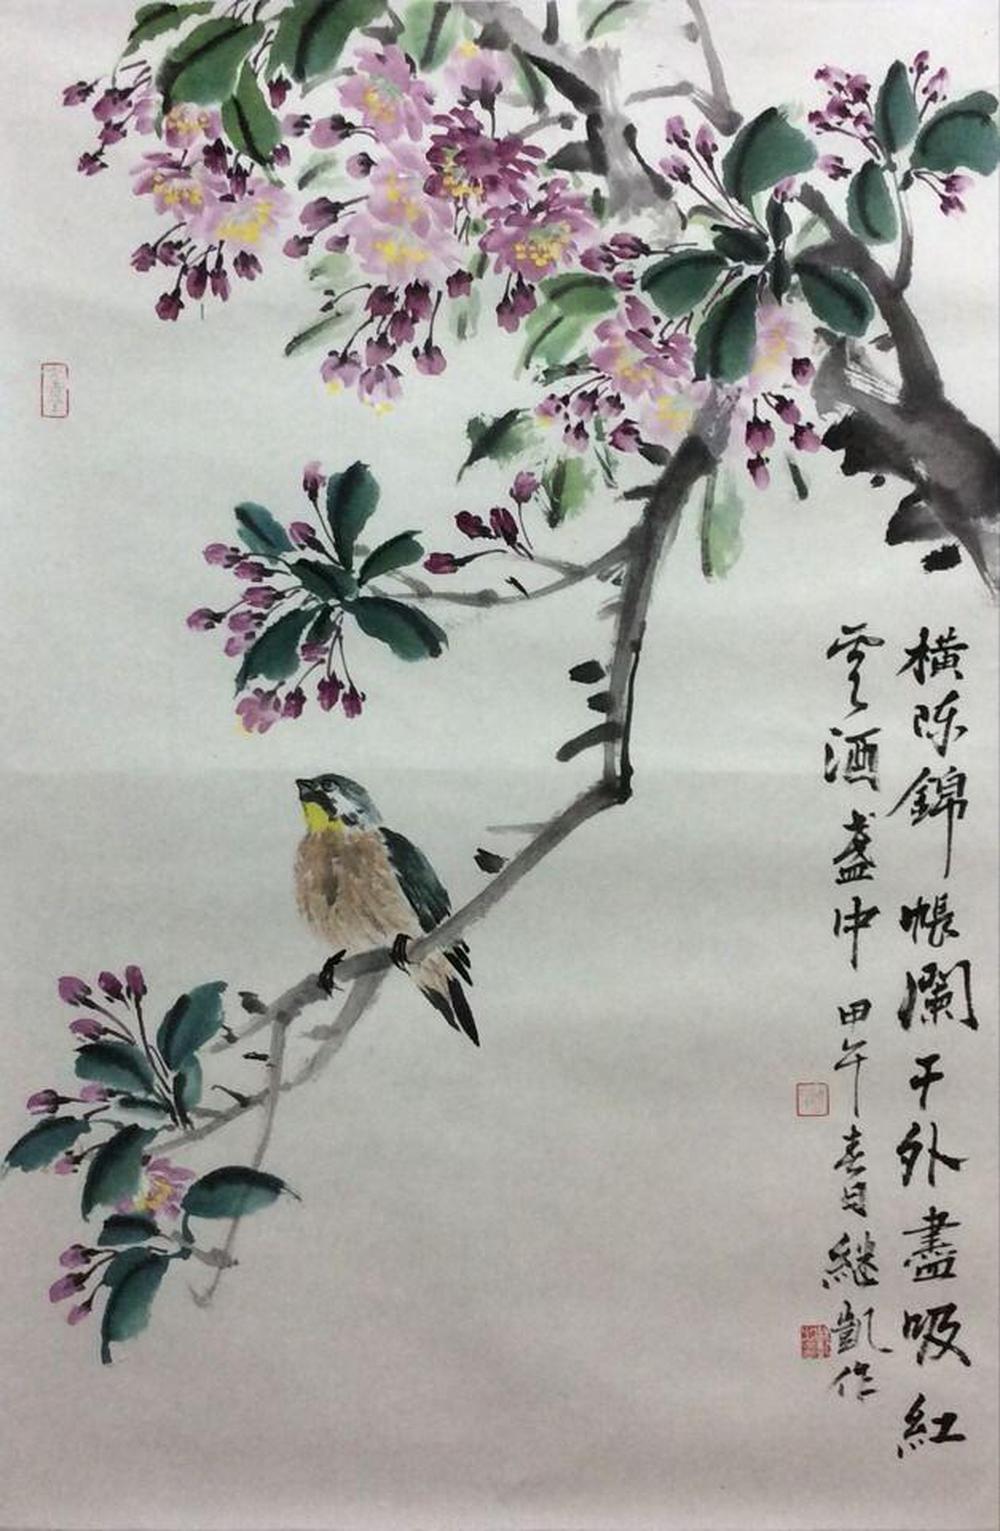 横陈錦帳闌干外盡吸紅
雲酒盞中 甲午春日繼凱作